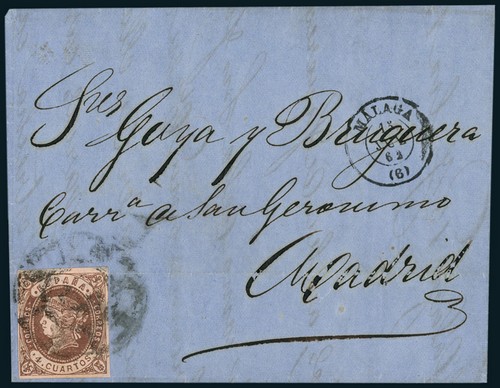 Sres
Goya y Bruguera
Carr.a de San Geronimo
Madrid
MALAGA
62
(6)
ESPAÑA
4 CUARTOS